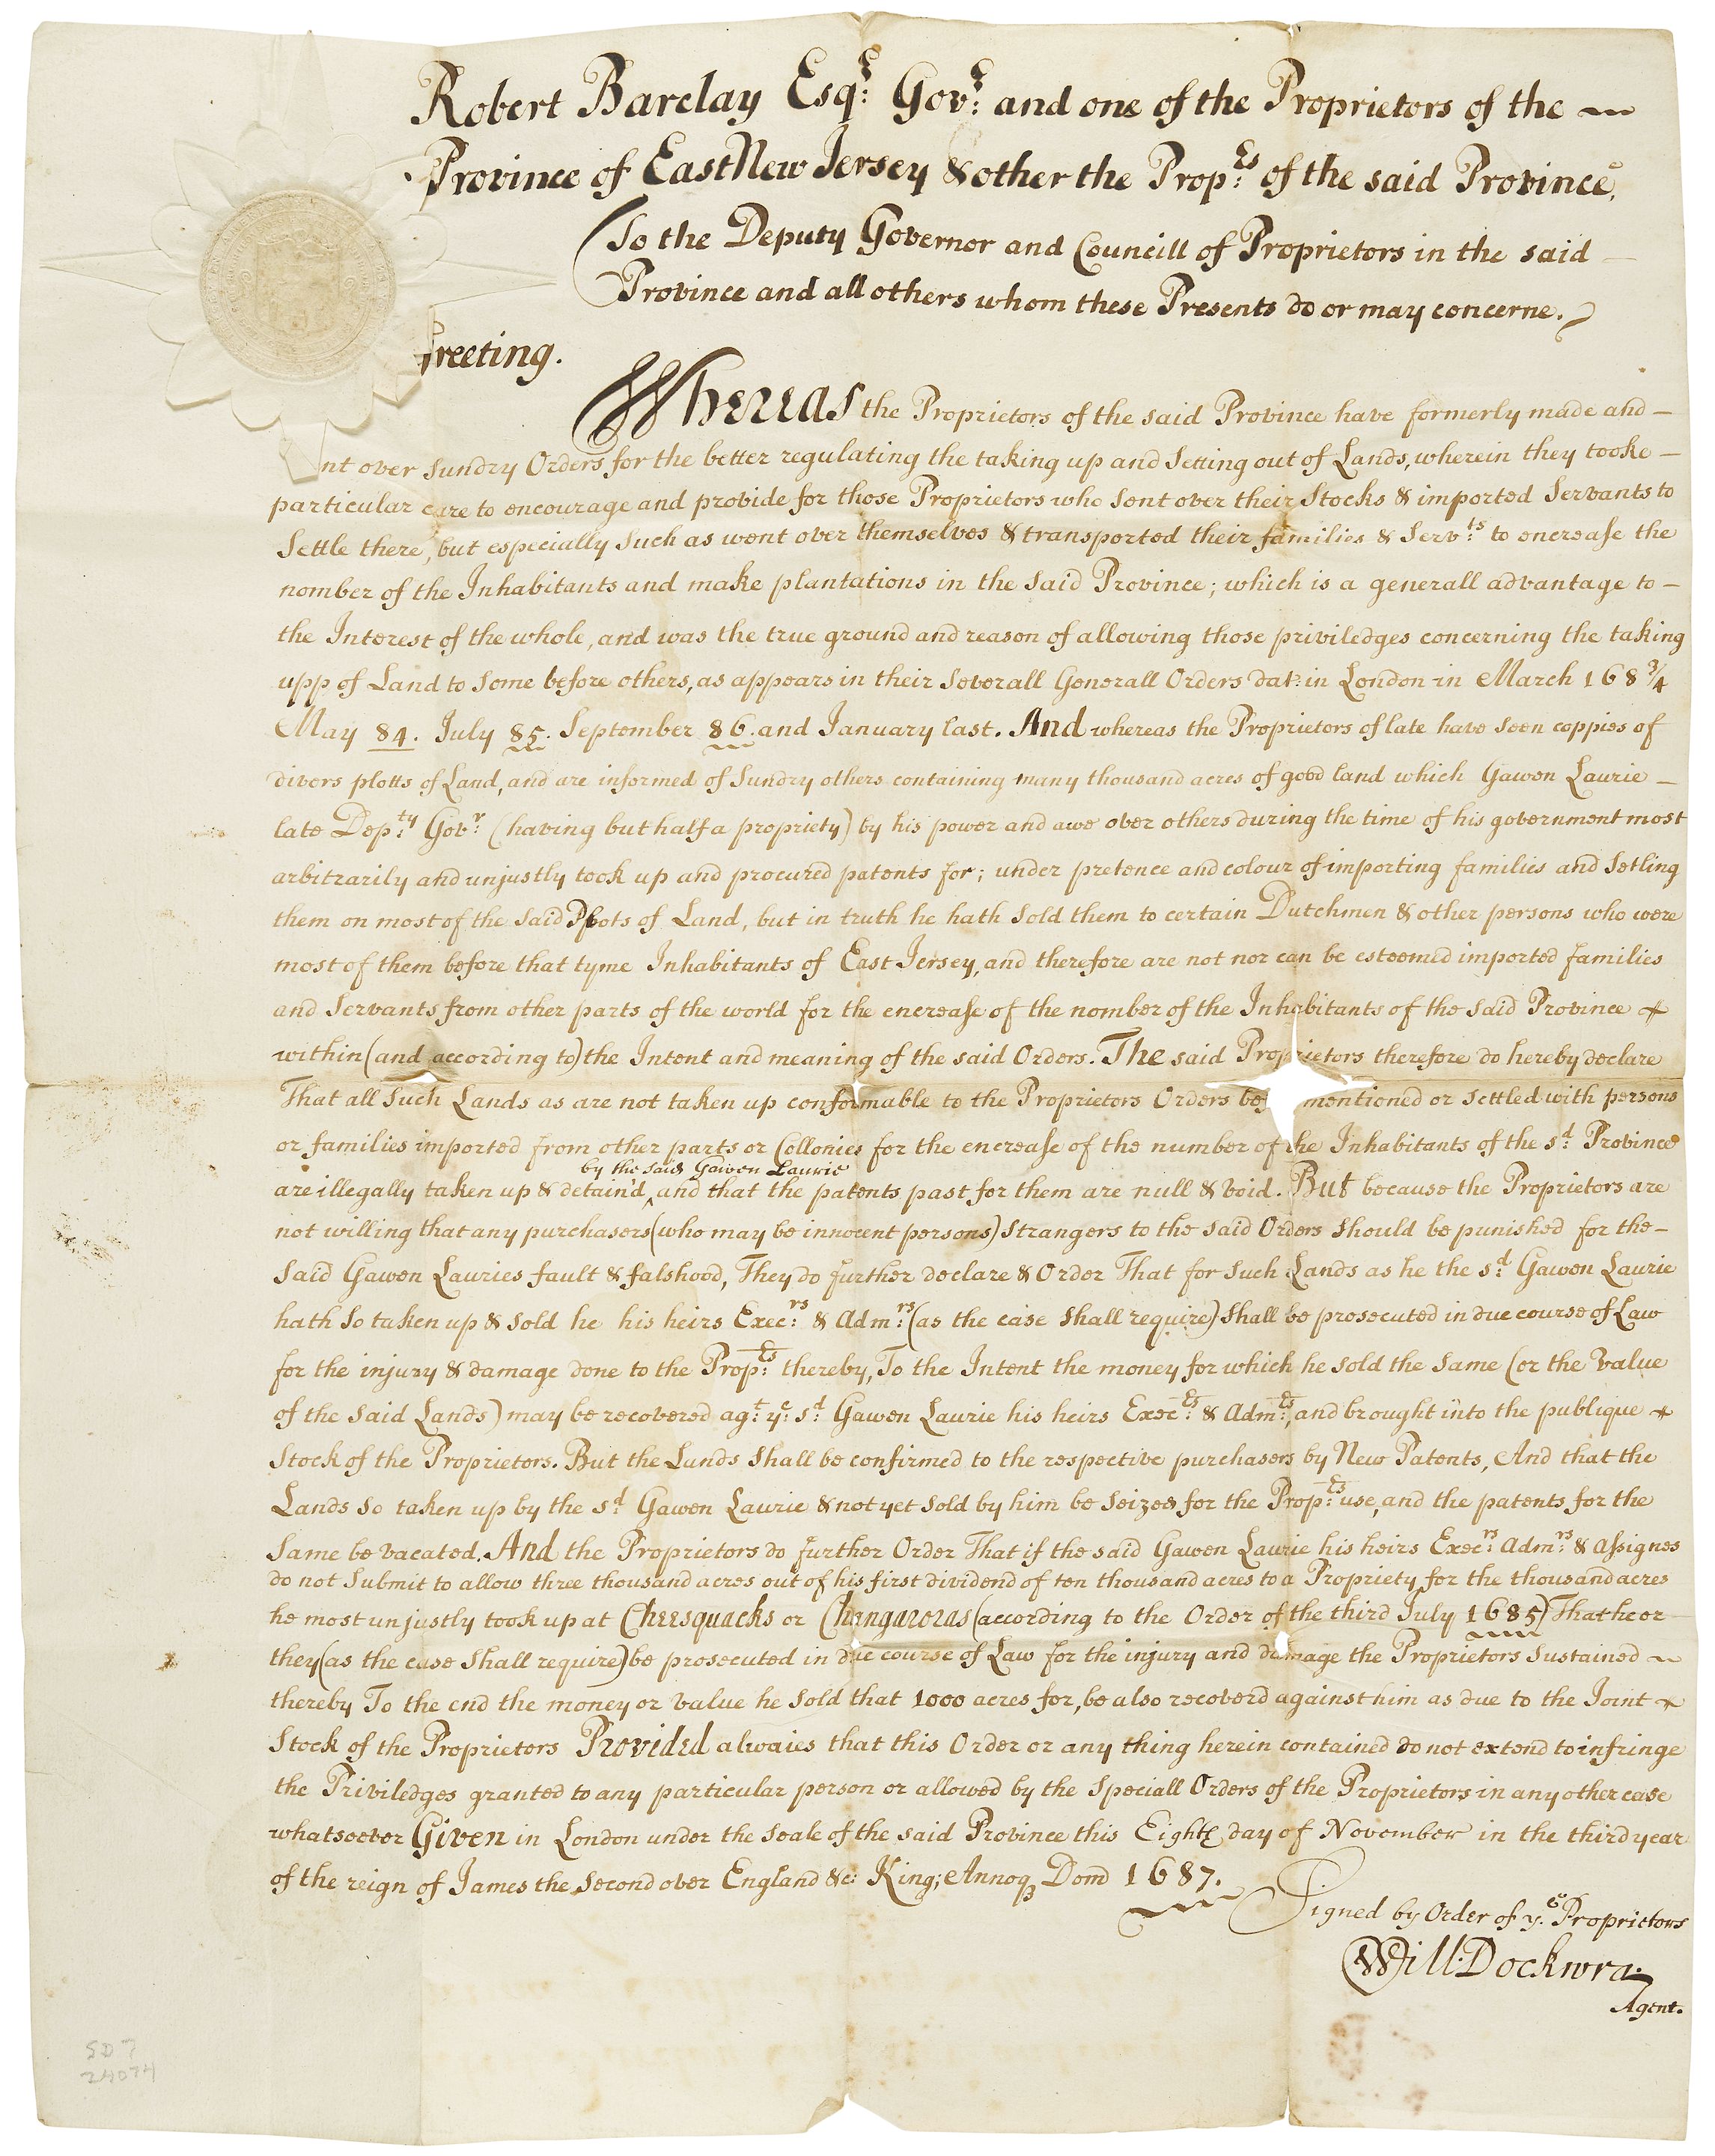 Robert Barclay Esqr: Govr: and one of the Proprietors of the
Province of East New Jersey & other the Proprs: of the said Province,
To the Deputy Governor and Councill of Proprietors in the said
Province and all others whom these Presents do or may concerne.
Greeting.
Whereas the Proprietors of the said Province have formerly made and
nt over sundry Orders for the better regulating the taking up and Setting out of Lands, wherein they tooke
particular care to encourage and provide for those Proprietors who sent over their Stocks & imported Servants to
Settle there, but especially Such as went over themselves & transported their families & Servts: to encrease the
nomber of the Inhabitants and make plantations in the said Province; which is a generall advantage to
the Interest of the whole, and was the true ground and reason of allowing those priviledges concerning the taking
upp of Land to Some before others, as appears in their Severall Generall Orders dat: in London in March 168 3/4
May 84. July 85. September 86. and January last. And whereas the Proprietors of late have seen coppies of
divers plotts of Land, and are informed of Sundry others containing many thousand acres of good land which Gawen Laurie
late Depty: Govr: (having but half a propriety) by his power and awe over others during the time of his government most
arbitrarily and unjustly took up and procured patents for; under pretence and colour of importing families and Setling
them on most of the said Plots of Land, but in truth he hath Sold them to certain Dutchmen & other persons who were
most of them before that tyme Inhabitants of East Jersey, and therefore are not nor can be esteemed imported families
and Servants from other parts of the world for the encrease of the nomber of the Inhabitants of the Said Province
within (and according to) the Intent and meaning of the said Orders. The said Proprietors therefore do hereby declare
That all Such Lands as are not taken up conformable to the Proprietors Orders bef mentioned or settled with persons
or families imported from other parts or Collonies for the encrease of the number of the Inhabitants of the sd: Province
by the said Gawen Laurie
are illegally taken up & detain'd, and that the patents past for them are null & void. But because the Proprietors are
not willing that any purchasers (who may be innocent persons) Strangers to the said Orders should be punished for the
said Gawen Lauries fault & falshood, They do further declare & Order That for Such Lands as he the sd: Gawen Laurie
hath So taken up & sold he his heirs Execrs: & Admrs: (as the case shall require) Shall be prosecuted in due course of Law
for the injury & damage done to the Proprs: thereby, To the Intent the money for which he sold the Same (or the value
of the said Lands) may be recovered agt: ye: sd: Gawen Laurie his heirs Execrs: & Admrs:, and brought into the publique
Stock of the Proprietors. But the Lands Shall be confirmed to the respective purchasers by New Patents, And that the
Lands so taken up by the sd Gawen Laurie & not yet sold by him be seized for the Proprs: use, and the patents for the
Same be vacated. And the Proprietors do further Order That if the said Gawen Laurie his heirs Execrs: Admrs: & Assignes
do not Submit to allow three thousand acres out of his first dividend of ten thousand acres to a Propriety for the thousand acres
he most unjustly took up at Cheesquacks or Chingaroras (according to the Order of the third July 1685) That he or
they (as the case Shall require) be prosecuted in due course of Law for the injury and damage the Proprietors Sustained
thereby To the end the money or value he Sold that 1000 acres for, be also recoverd against him as due to the Joint
Stock of the Proprietors Provided alwaies that this Order or any thing herein contained do not extend to infringe
the Priviledges granted to any particular person or allowed by the Speciall Orders of the Proprietors in any other case
whatsoever Given in London under the Seale of the said Province this Eighth day of November in the third year
of the reign of James the Second over England &c: King; Annoq Dom 1687.
Signed by Order of ye: Proprietors
Will: Dockwra
Agent.
SD 7
24074